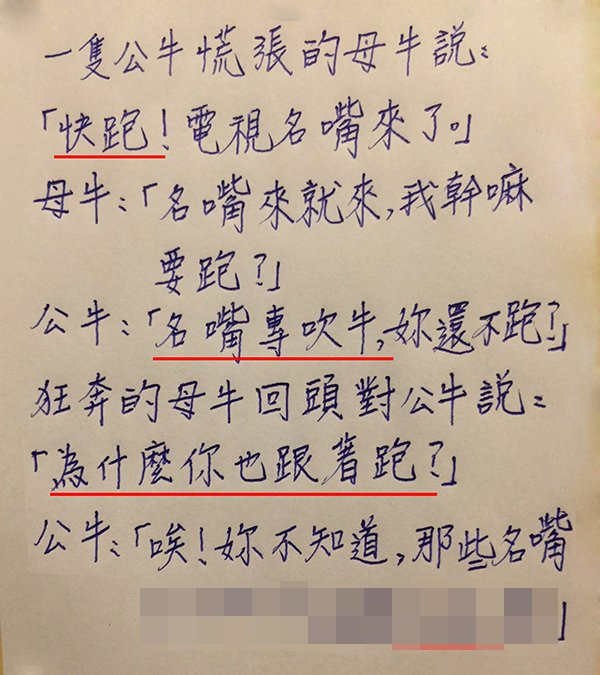 一隻公牛慌張的母牛說：
「快跑！電視名嘴來了。」
母牛：「名嘴來就來，我幹嘛
要跑？」
公牛：「名嘴專吹牛，妳還不跑？」
狂奔的母牛回頭對公牛說：
「為什麼你也跟著跑？」
公牛：「唉！妳不知道，那些名嘴
」